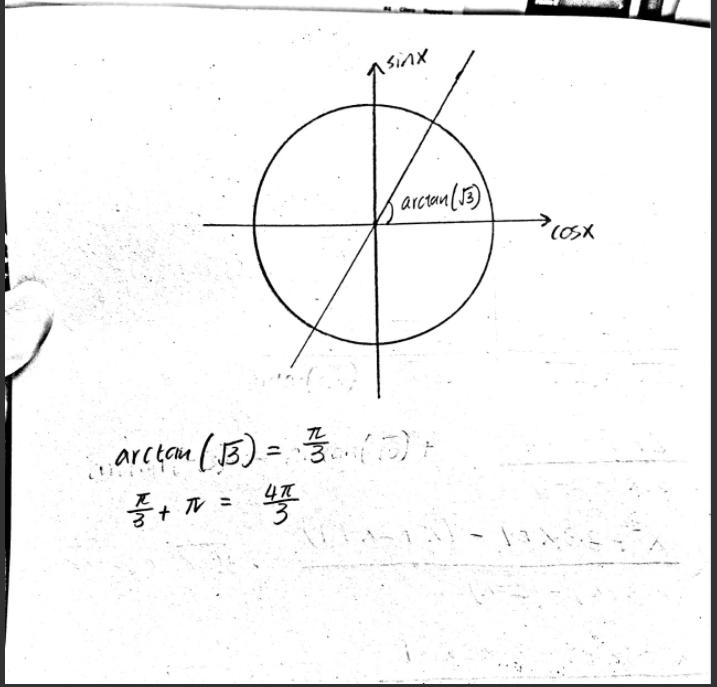 sinx
arctan(√3)
cosx
arctan(√3) = π/3
π/3 + π = 4π/3